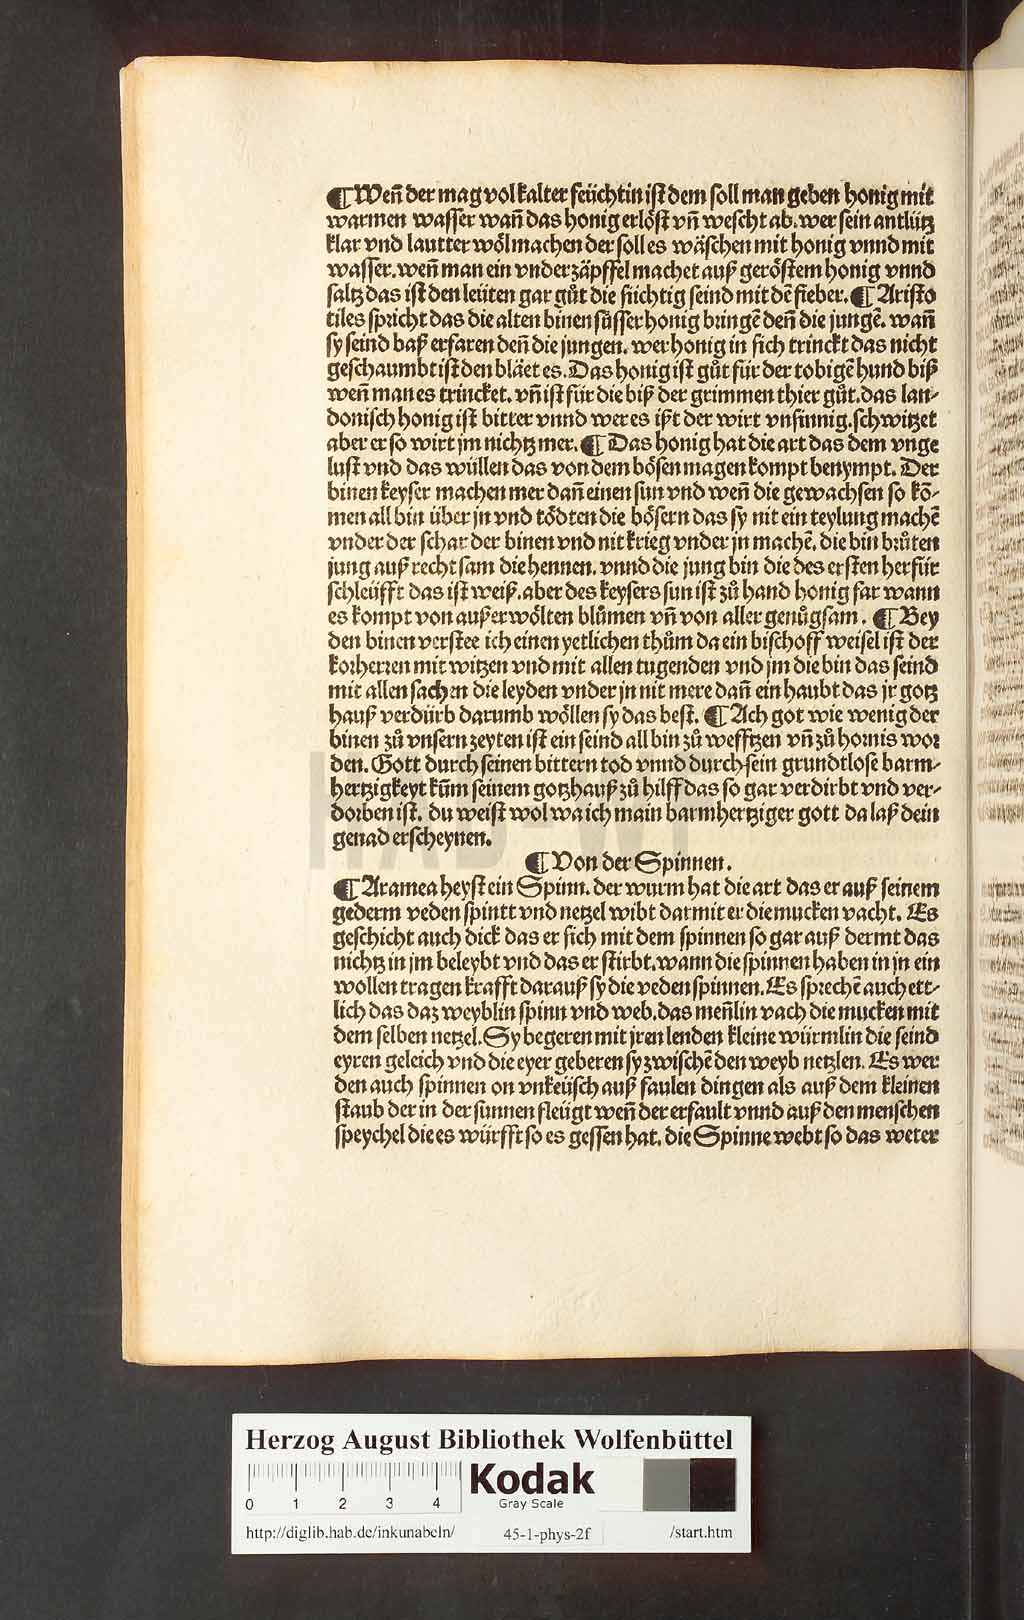 ¶ Weñ der mag vol kalter feüchtin ist dem soll man geben honig mit
warmen wasser wañ das honig erlöst vñ wescht ab. wer sein antlütz
klar vnd lautter wöl machen der soll es wäschen mit honig vnnd mit
wasser. weñ man ein vnder zäpffel machet auß geröstem honig vnnd
saltz das ist den leüten gar gůt die füchtig seind mit dē fieber. ¶ Aristo
tiles spricht das die alten binen süsser honig bringē deñ die jungē. wañ
sy seind baß erfaren deñ die jungen. wer honig in sich trinckt das nicht
geschaumbt ist den bläet es. Das honig ist gůt für der tobigē hund biß
weñ man es trincket. vñ ist für die biß der grimmen thier gůt. das lan⸗
donisch honig ist bitter vnnd wer es ißt der wirt vnsinnig. schwitzet
aber er so wirt jm nichtz mer. ¶ Das honig hat die art das dem vnge
lust vnd das wüllen das von dem bösen magen kompt benympt. Der
binen keyser machen mer dañ einen sun vnd weñ die gewachsen so kō⸗
men all bin über jn vnd tödten die bösern das sy nit ein teylung machē
vnder der schar der binen vnd nit krieg vnder jn machē. die bin brůten
jung auß recht sam die hennen. vnnd die jung bin die des ersten her für
schleüfft das ist weiß. aber des keysers sun ist zů hand honig far wann
es kompt von außerwölten blůmen vñ von aller genůgsam. ¶ Bey
den binen verstee ich einen yetlichen thům da ein bischoff weisel ist der
korherren mit witzen vnd mit allen tugenden vnd jm die bin das seind
mit allen sachen die leyden vnder jn nit mere dañ ein haubt das jr gotz
hauß verdürb darumb wöllen sy das best. ¶ Ach got wie wenig der
binen zů vnsern zeyten ist ein seind all bin zů wefftzen vñ zů hornis wor
den. Gott durch seinen bittern tod vnnd durch sein grundtlose barm⸗
hertzigkeyt kům seinem gotzhauß zů hilff das so gar verdirbt vnd ver⸗
dorben ist. du weist wol wa ich main barmhertziger gott da laß dein
genad erscheynen.
¶ Von der Spinnen.
¶ Aramea heyst ein Spinn. der wurm hat die art das er auß seinem
gederm veden spintt vnd netzel wibt dar mit er die mucken vacht. Es
geschicht auch dick das er sich mit dem spinnen so gar auß dermt das
nichtz in jm beleybt vnd das er stirbt. wann die spinnen haben in jn ein
wollen tragen krafft darauß sy die veden spinnen. Es sprechē auch ett⸗
lich das daz weyblin spinn vnd web. das meñlin vach die mucken mit
dem selben netzel. Sy begeren mit jren lenden kleine würmlin die seind
eyren geleich vnd die eyer geberen sy zwischē den weyb netzlen. Es wer
den auch spinnen on vnkeüsch auß faulen dingen als auß dem kleinen
staub der in der sunnen fleügt weñ der erfault vnnd auß den menschen
speychel die es würfft so es gessen hat. die Spinne webt so das weter
HAB-WF
Herzog August Bibliothek Wolfenbüttel
0 1 2 3 4
Kodak
Gray Scale
http://diglib.hab.de/inkunabeln/ 45-1-phys-2f /start.htm